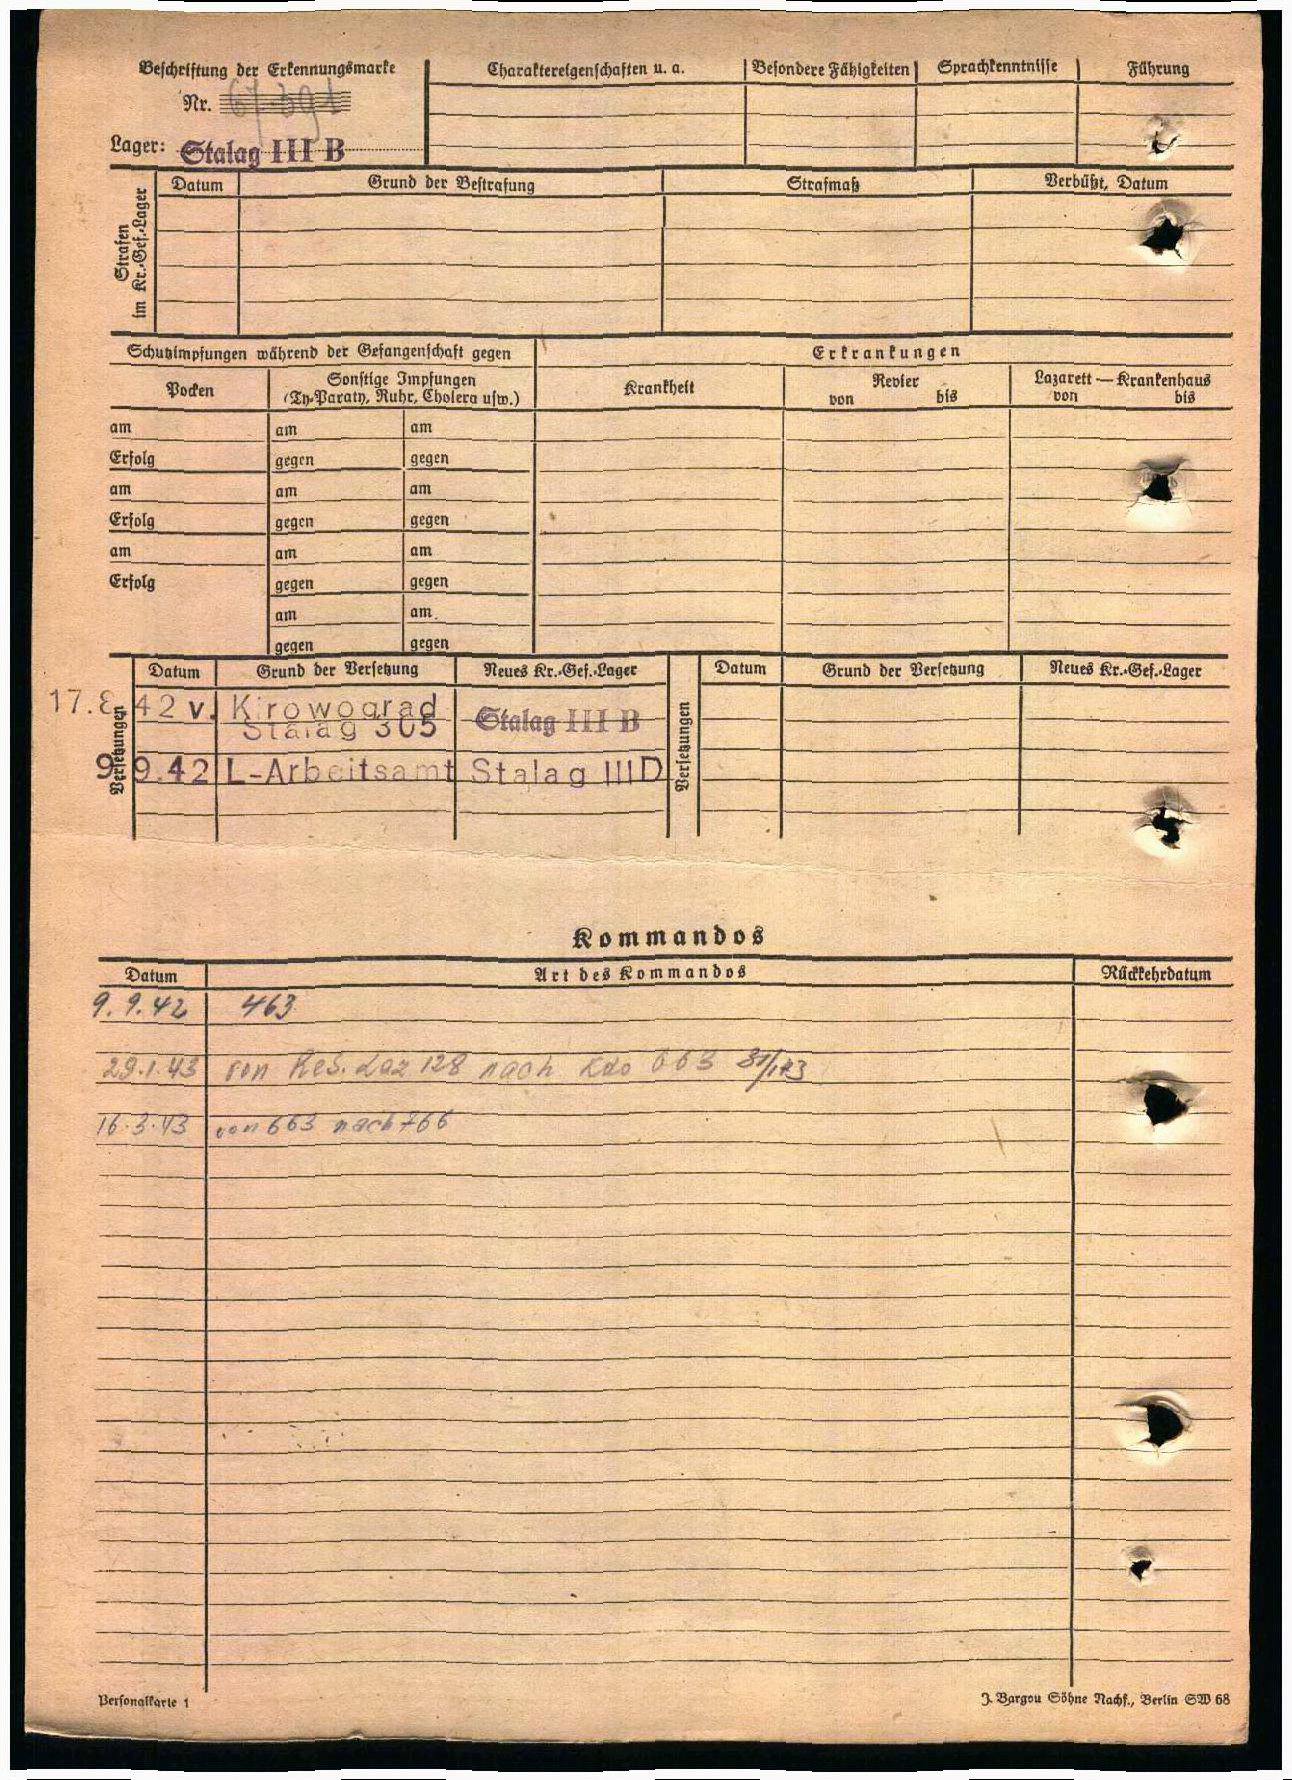 Beschriftung der Erkennungsmarke
Nr. 67391
Lager: Stalag III B
Charaktereigenschaften u. a.
Besondere Fähigkeiten
Sprachkenntnisse
Führung
Strafen
im Kr.-Gef.-Lager
Datum
Grund der Bestrafung
Strafmaß
Verbüßt, Datum
Schutzimpfungen während der Gefangenschaft gegen
Erkrankungen
Pocken
Sonstige Impfungen
(Ty-Paraty, Ruhr, Cholera usw.)
Krankheit
Revier
von bis
Lazarett — Krankenhaus
von bis
am am am
Erfolg gegen gegen
am am am
Erfolg gegen gegen
am am am
Erfolg gegen gegen
am am
gegen gegen
Versetzungen
Datum Grund der Versetzung Neues Kr.-Gef.-Lager
17.8 42 v. Kirowograd
Stalag 305 Stalag III B
9. 9.42 L-Arbeitsamt Stalag IIID
Versetzungen
Datum Grund der Versetzung Neues Kr.-Gef.-Lager
Kommandos
Datum Art des Kommandos Rückkehrdatum
9.9.42 463
29.1.43 von Res. Laz 128 nach Kdo 663
16.3.43 von 663 nach 766
Personalkarte 1
J. Bargou Söhne Nachf., Berlin SW 68